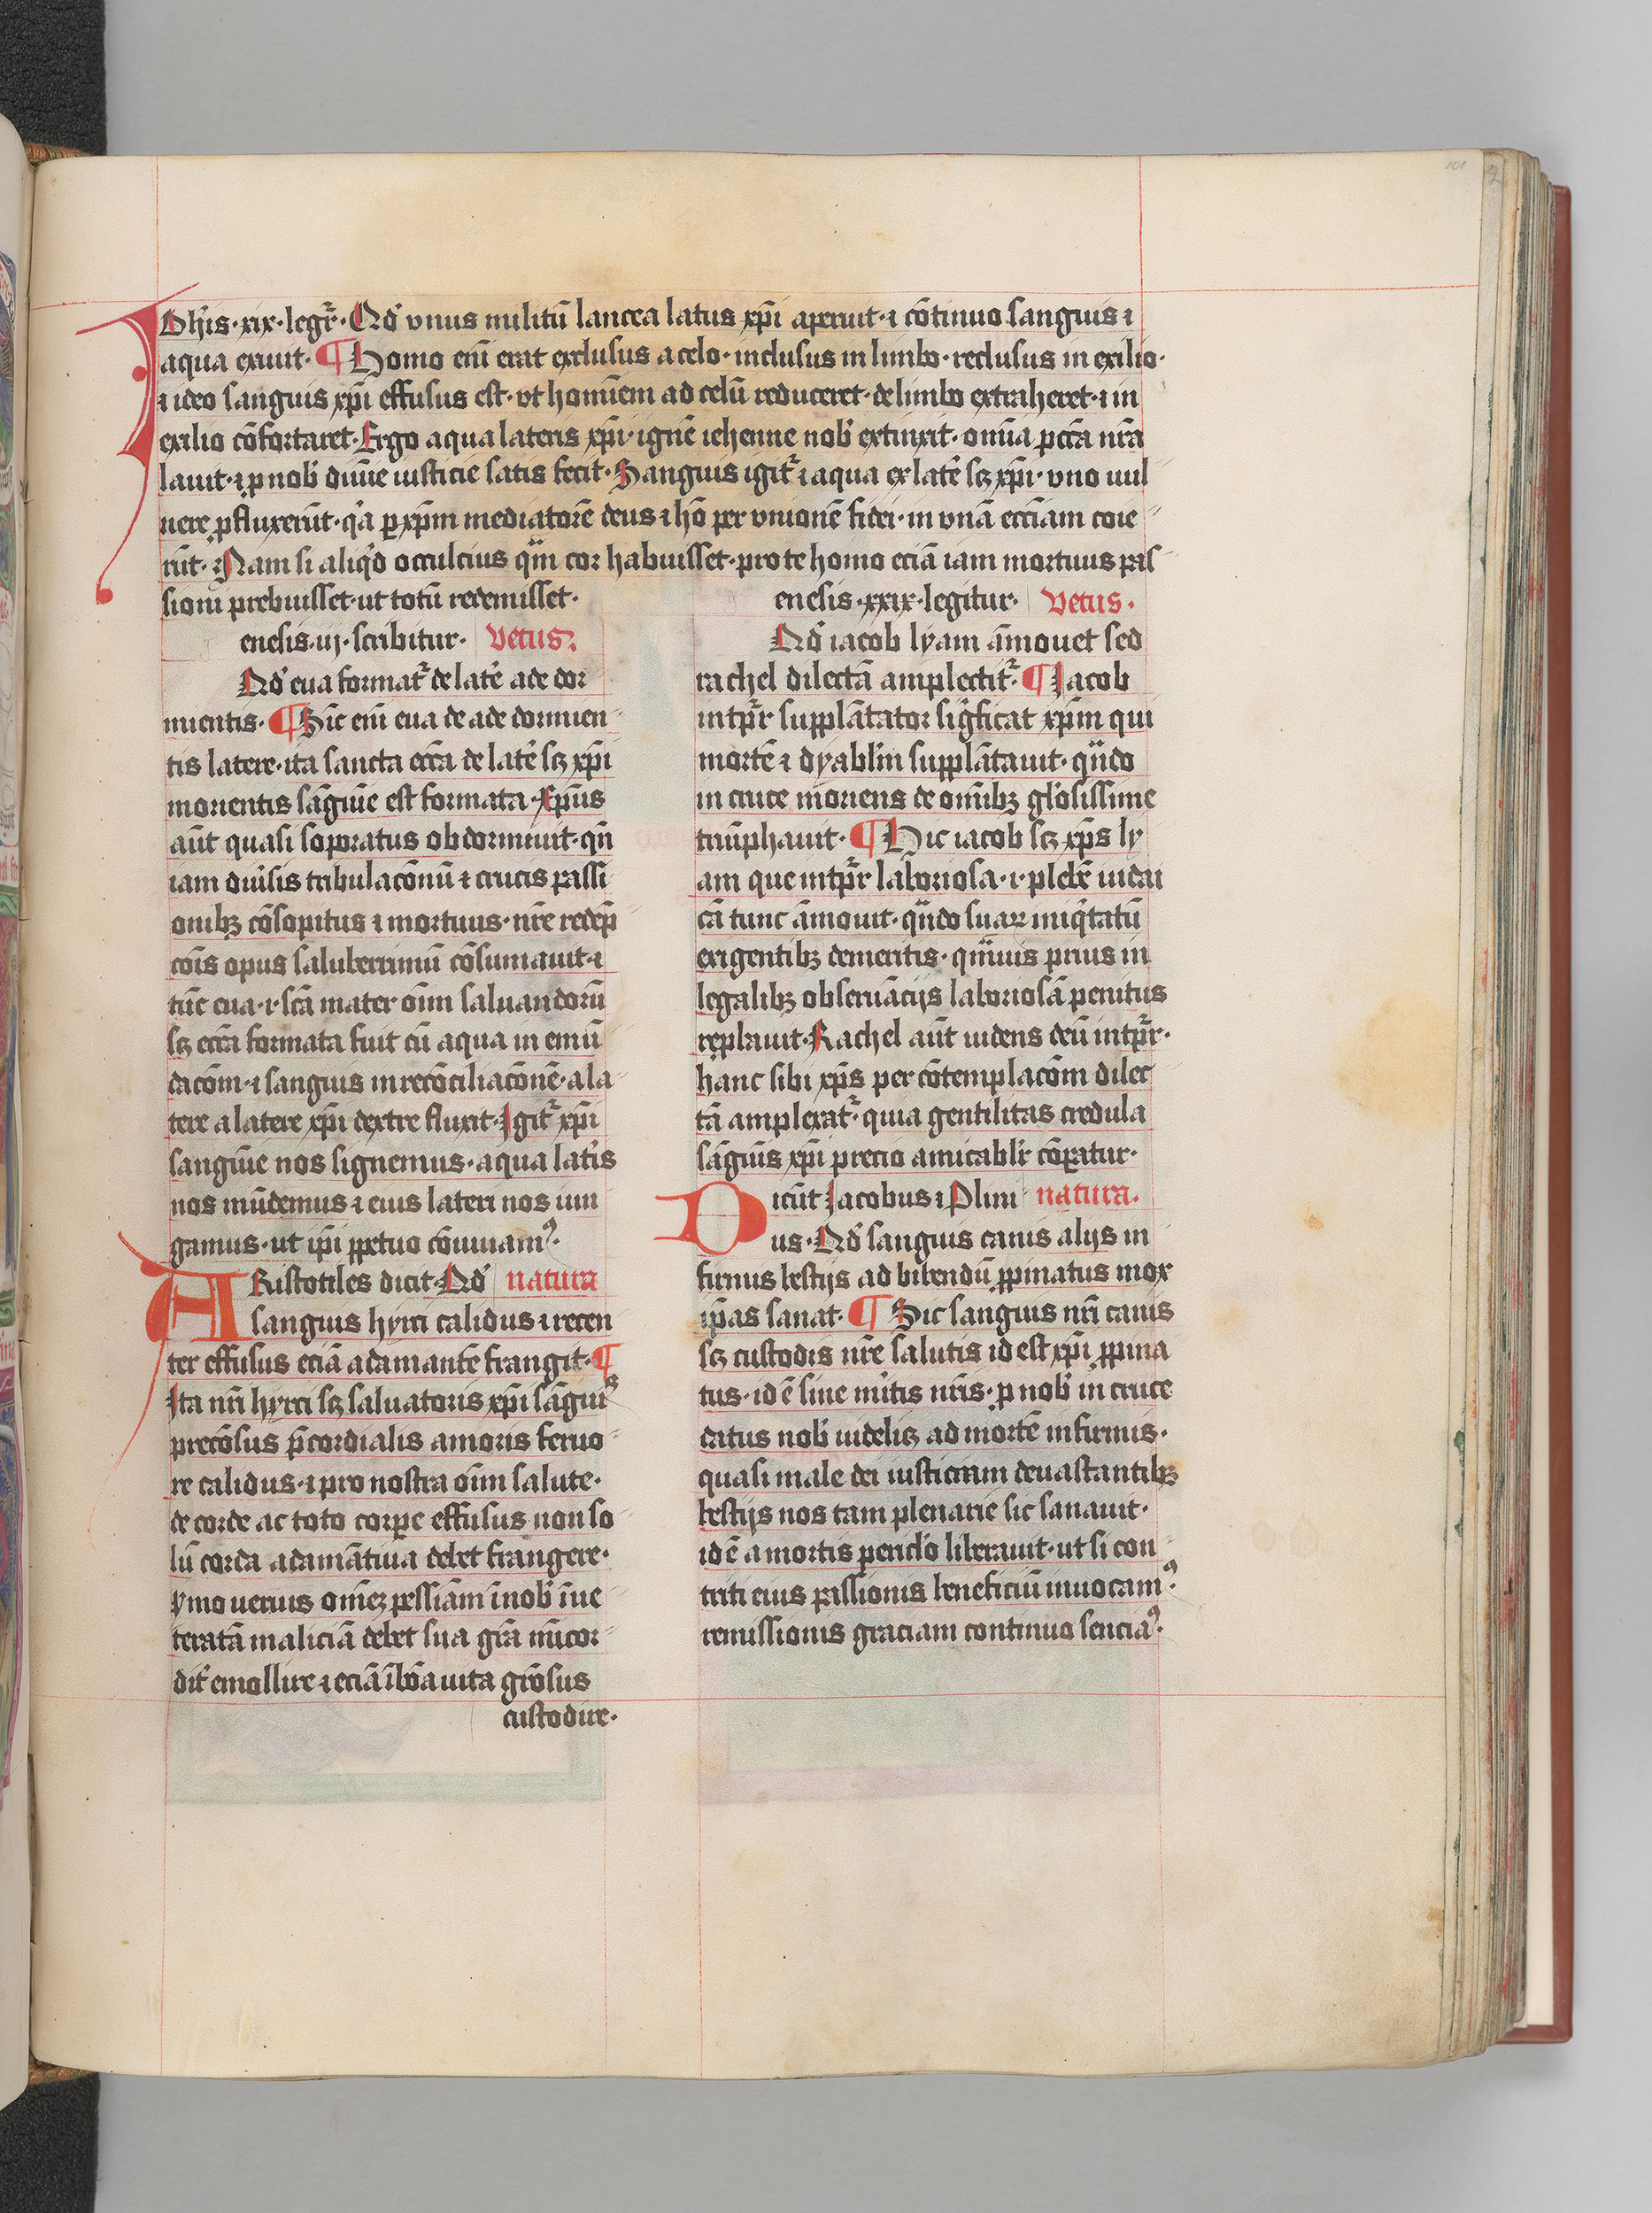 Joh'is·xix·legr̃·Qd' vnus militū lancea latus xp̄i aperuit·⁊ cōtinuo sanguis ⁊
aqua exiuit·¶Homo em̄ erat exclusus a celo·inclusus in limbo·reclusus in exilio·
⁊ ideo sanguis xp̄i effusus est·vt hominem ad celū reduceret·de limbo extraheret·⁊ in
exilio cōfortaret·Ergo aqua lateris xp̄i·ignē iehenne nob' extinxit·omīa pccā nr̄a
lauit·⁊ p nob' diuine iusticie satis fecit·Sanguis igit̃ ⁊ aqua ex latē sꝫ xp̄i·vno vul
nere ꝓfluxerūt·q'a ꝑ xp̄m mediatorē deus ⁊ hō per vnionē fidei·in vnā ecciam coie
rūt·Nam si aliq'd occulcius qm̄ cor habuisset·pro te homo eciā iam mortuus pas
sioni prebuisset·ut totū redemisset·
enesis·iij·scribitur· vetus
Qd' eua format̃ de lat'e ade dor
mientis·¶Sic em̄ eua de ade dormien
tis latere·ita sancta ecc̄a de lat'e sꝫ xp̄i
morientis sāguīe est formata·Xpūs
aūt quasi soporatus obdormiuit·qn̄
iam diu'sis tribulacōnū ⁊ crucis passi
onibꝫ cōsopitus ⁊ mortuus·nr̄e redēp
cōis opus saluberrimū cōsumauit·⁊
tūc eua·i·scā mater oīm saluandorū
sꝫ ecc̄a formata fuit cū aqua in emū
dacōm·⁊ sanguis in recōciliacōnē·a la
tere a latere xp̄i dextre fluxit·Igit̃ xp̄i
sanguīe nos signemus·aqua lat'is
nos mūdemus ⁊ eius lateri nos iun
gamus·ut ip̄i ꝑpetuo cōuiuam⁹·
ARistotiles dicit·Qd' natura
sanguis hyrci calidus ⁊ recen
ter effusus eciā adamantē frangit·¶
Ita nr̄i hyrci sꝫ saluatoris xp̄i sāgui⁹
preciōsus p̄cordialis amoris feruo
re calidus·⁊ pro nostra oīm salute·
de corde ac toto corꝑe effusus non so
lū corda adamātina debet frangere·
ymo uerius om̄eꝫ pessīam ī nob' īue
teratā maliciā debet sua gr̄a m̄icor
dit' emollire ⁊ eciā ī bōa uita gr̄osius
custodire·
enesis·xxix·legitur· vetus·
Qd' iacob lyam āmouet sed
rachel dilectā amplectit̃·¶Jacob
intp̄r supplātator sig̃ficat xp̄m qui
mortē ⁊ dyabl'm supplātauit·qn̄do
in cruce moriens de omībꝫ gl'osissime
triūphauit·¶Hic iacob sꝫ xp̄s ly
am que intp̄r laboriosa·i·plebē iudai
cā tunc āmouit·qn̄do suaꝝ iniq̄tatū
exigentibꝫ demeritis·qm̄uis prius in
legalibꝫ obseruācijs laboriosā penitus
replauit·Rachel aūt uidens deū intp̄r·
hanc sibi xp̄s per cōtemplacōm dilec
tā amplexat̃·quia gentilitas credula
sāguīs xp̄i precio amicabl'r cōꝑatur·
Dicūt Jacobus ⁊ Plini natura·
us·Qd' sanguis canis alijs in
firmus bestijs ad bibendū ꝓpinatus mox
ip̄as sanat·¶Sic sanguis nr̄i canis
sꝫ custodis nr̄e salutis id est xp̄i ꝓpina
tus·id ē siue m̄itis nr̄is·p nob' in cruce
datus nob' uidelicꝫ ad mortē infirmis·
quasi male dei iusticiam deuastantibꝫ
bestijs nos tam plenarie sic sanauit·
id ē a mortis pericl'o liberauit·ut si con
triti eius passionis beneficiū inuocam⁹·
remissionis graciam continuo sencia⁹·